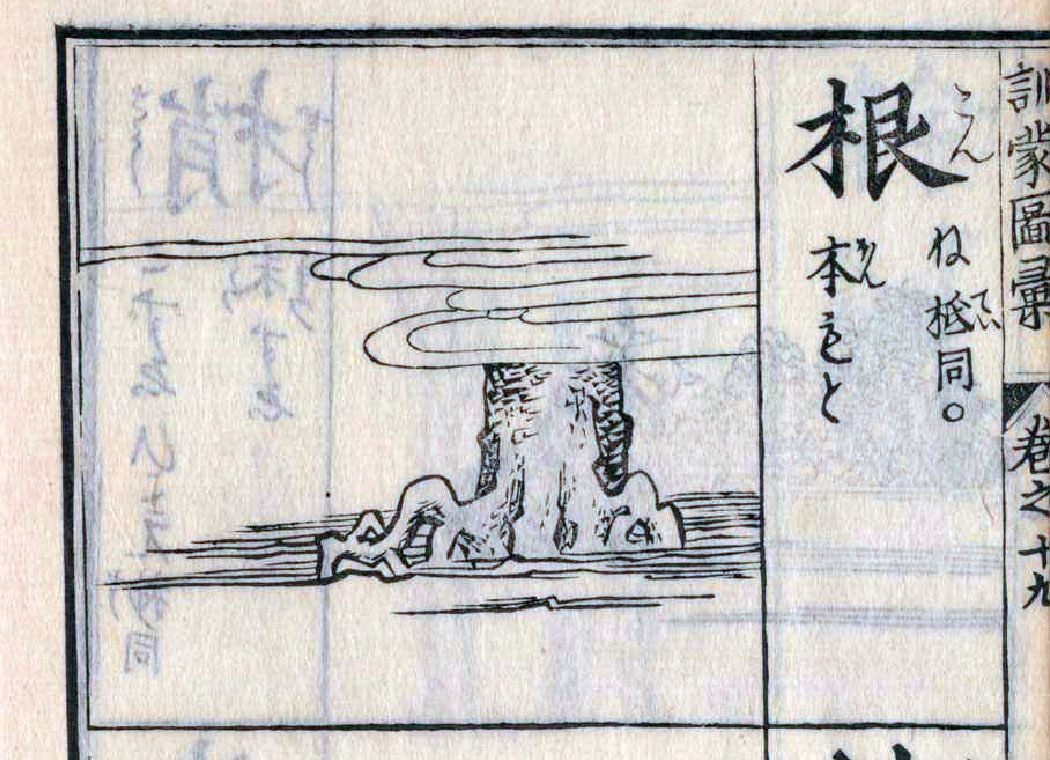 訓蒙圖彙
巻之十九
根
こん
ね 柢同。
てい
本もと
ほん